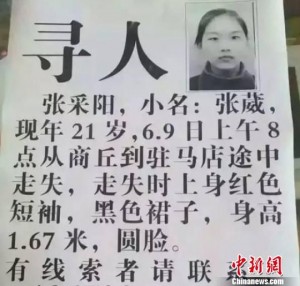 寻人
张采阳，小名：张葳，
现年 21 岁，6.9 日上午 8
点从商丘到驻马店途中
走失，走失时上身红色
短袖，黑色裙子，身高
1.67 米，圆脸。
有线索者请联
中新网